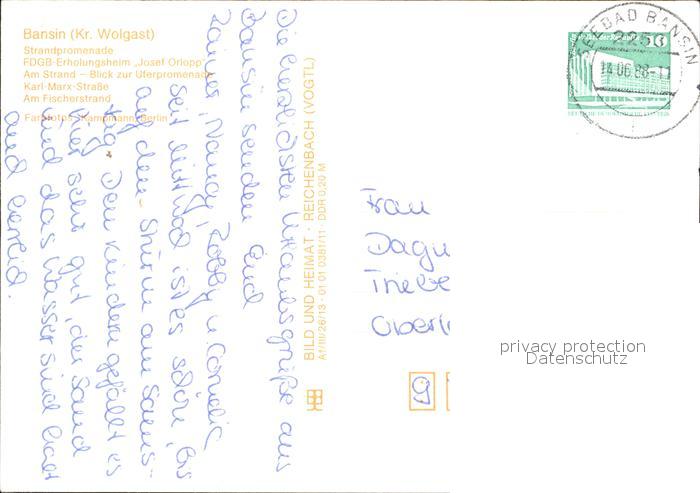 Bansin (Kr. Wolgast)
Strandpromenade
FDGB-Erholungsheim „Josef Orlopp"
Am Strand – Blick zur Uferpromenade
Karl-Marx-Straße
Am Fischerstrand
Farbfotos: Kampmann, Berlin
Die herzlichsten Urlaubsgrüße aus
Bansin senden Euch
Rainer, Nancy, Robby u. Cornelia
Seit Mittwoch ist es schön, bis
auf den Sturm am Sams-
tag. Den Kindern gefällt es
hier sehr gut, der Sand
und das Wasser sind
und
BILD UND HEIMAT · REICHENBACH (VOGTL)
A1/III/26/13 · 01 01 0381/11 · DDR 0,20 M
SEEBAD BANSIN
2256
14.06.88-11
Frau
Dagm
Triebe
Oberl
9
privacy protection
Datenschutz